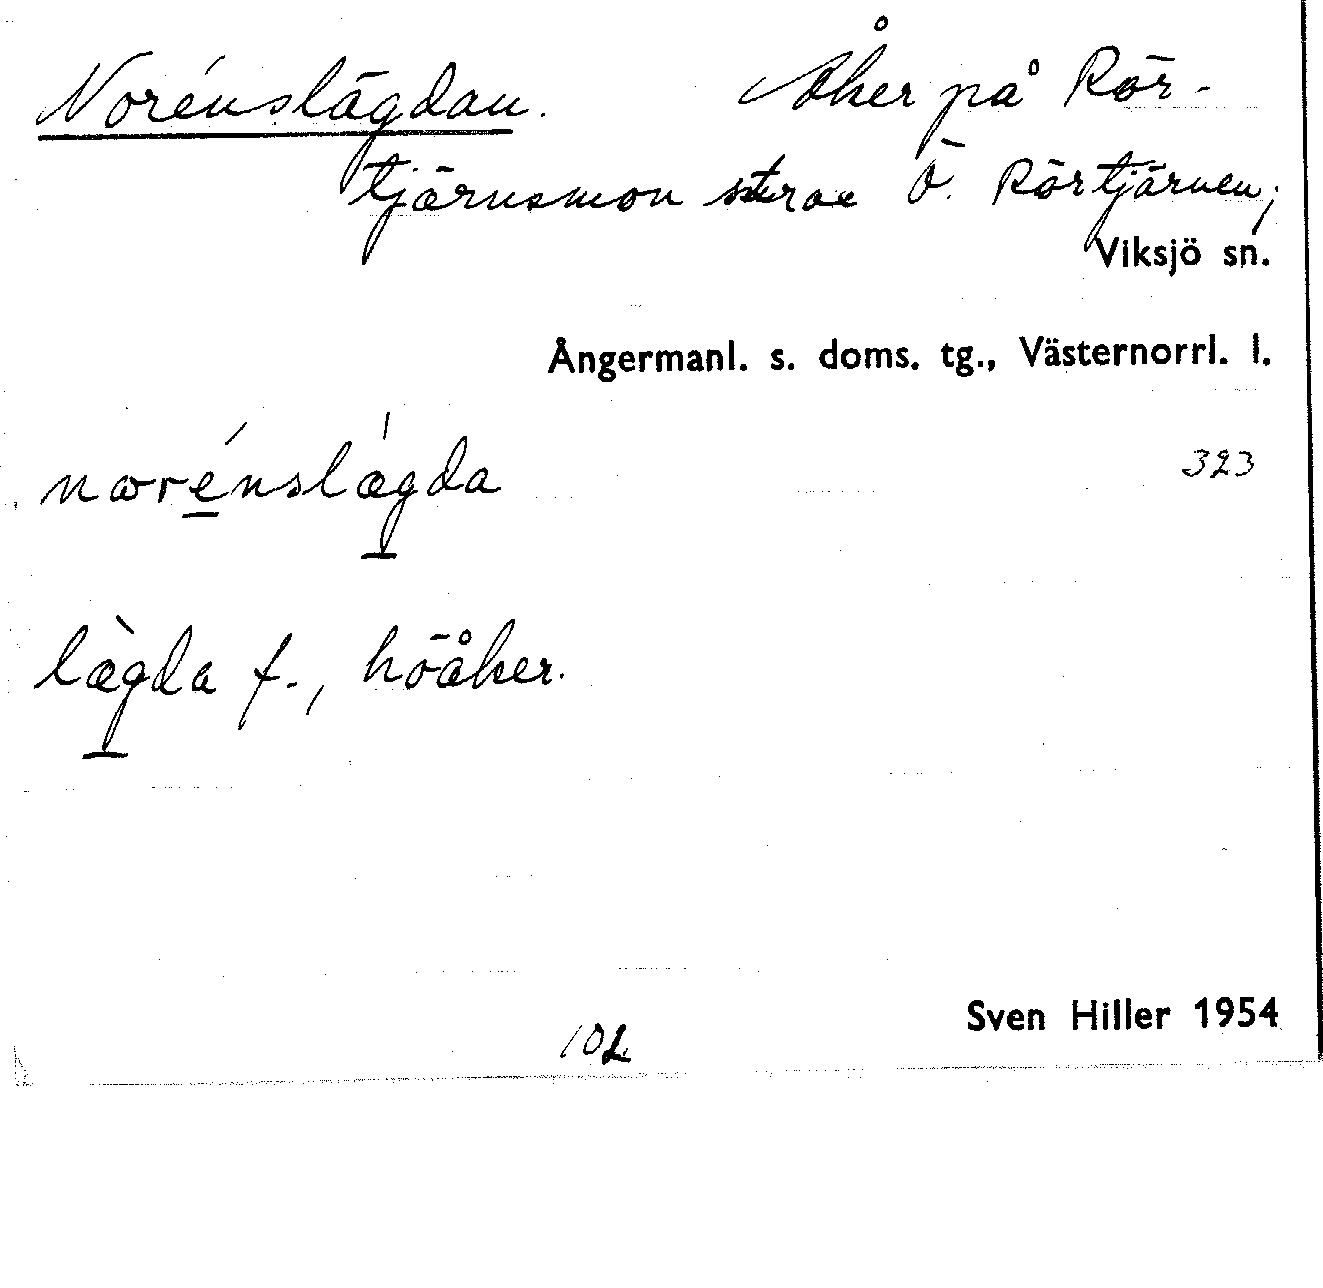 Norénslägdan. Åker på Rör-
tjärnsmon Ö. Rörtjärnen,
Viksjö sn.
Ångermanl. s. doms. tg., Västernorrl. l.
nærénslægda 323
lægda f., höåker.
Sven Hiller 1954
102